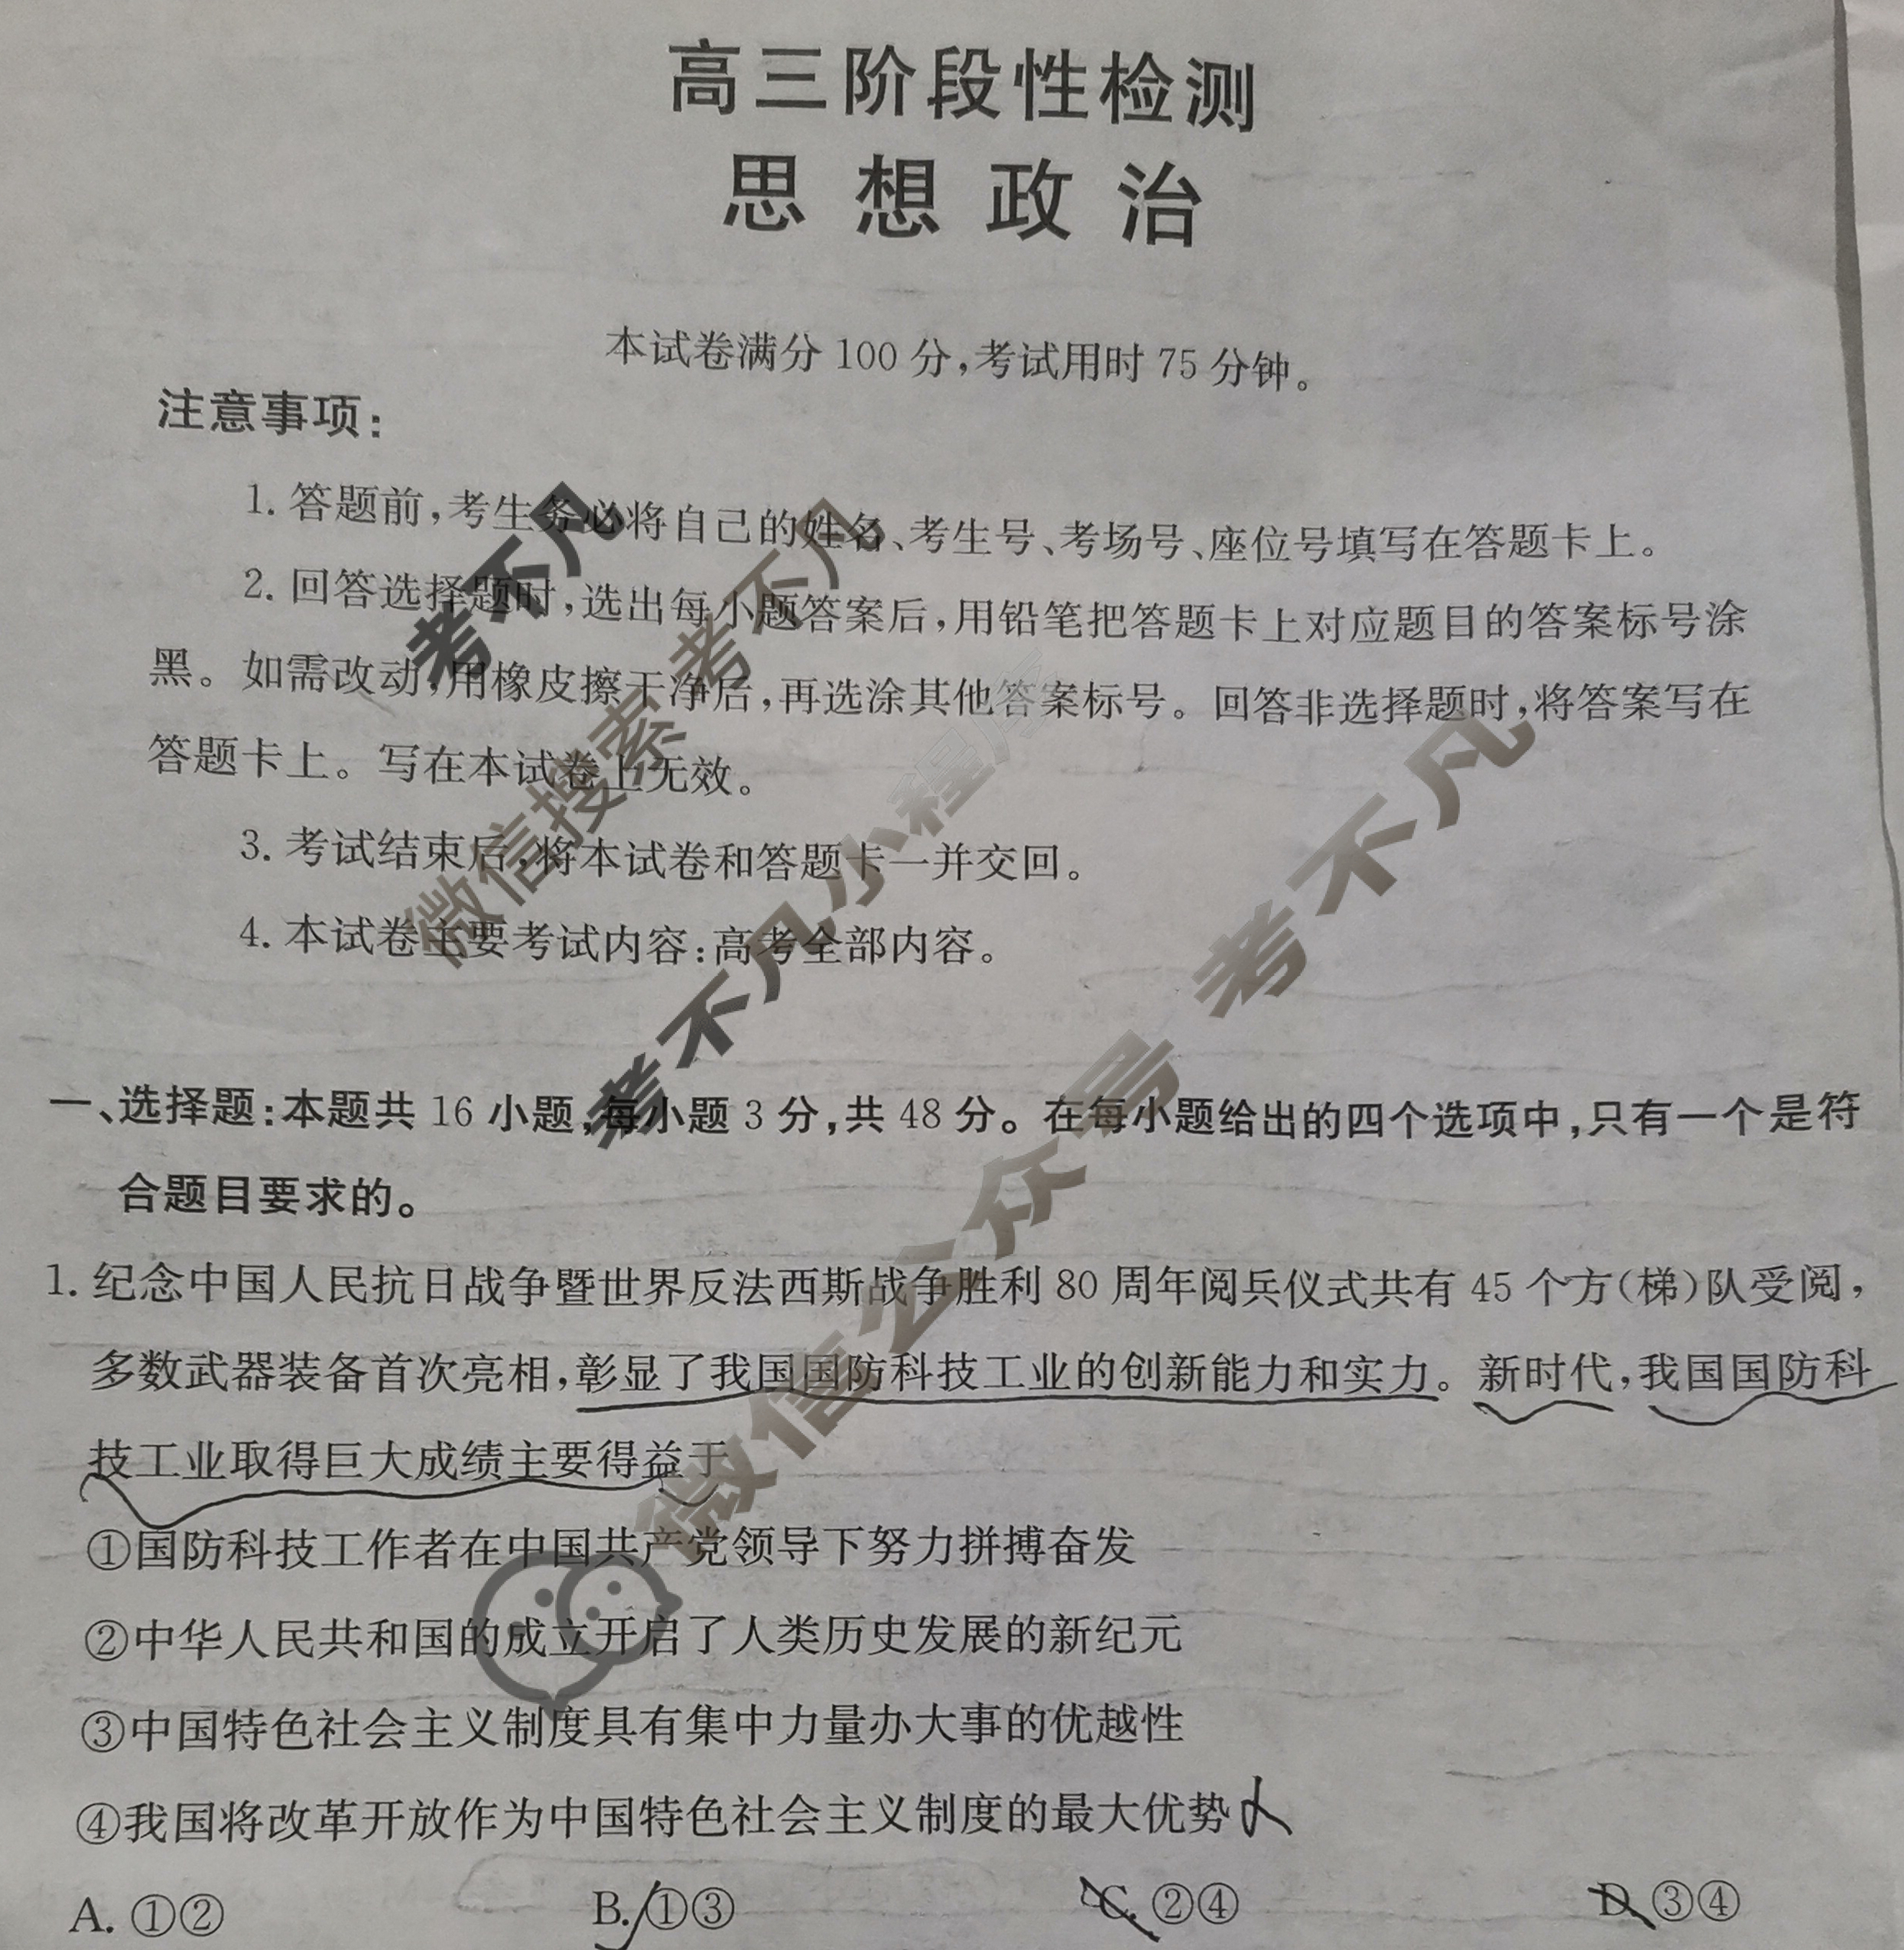 高三阶段性检测
思想政治
本试卷满分100分,考试用时75分钟。
注意事项:
1. 答题前,考生务必将自己的姓名、考生号、考场号、座位号填写在答题卡上。
2. 回答选择题时,选出每小题答案后,用铅笔把答题卡上对应题目的答案标号涂
黑。如需改动,用橡皮擦干净后,再选涂其他答案标号。回答非选择题时,将答案写在
答题卡上。写在本试卷上无效。
3. 考试结束后,将本试卷和答题卡一并交回。
4. 本试卷主要考试内容:高考全部内容。
考不凡
微信搜索 考不凡
考不凡小程序
微信公众号 考不凡
一、选择题:本题共16小题,每小题3分,共48分。在每小题给出的四个选项中,只有一个是符
合题目要求的。
1. 纪念中国人民抗日战争暨世界反法西斯战争胜利80周年阅兵仪式共有45个方(梯)队受阅,
多数武器装备首次亮相,彰显了我国国防科技工业的创新能力和实力。新时代,我国国防科
技工业取得巨大成绩主要得益于
①国防科技工作者在中国共产党领导下努力拼搏奋发
②中华人民共和国的成立开启了人类历史发展的新纪元
③中国特色社会主义制度具有集中力量办大事的优越性
④我国将改革开放作为中国特色社会主义制度的最大优势
A. ①② B. ①③ C. ②④ D. ③④